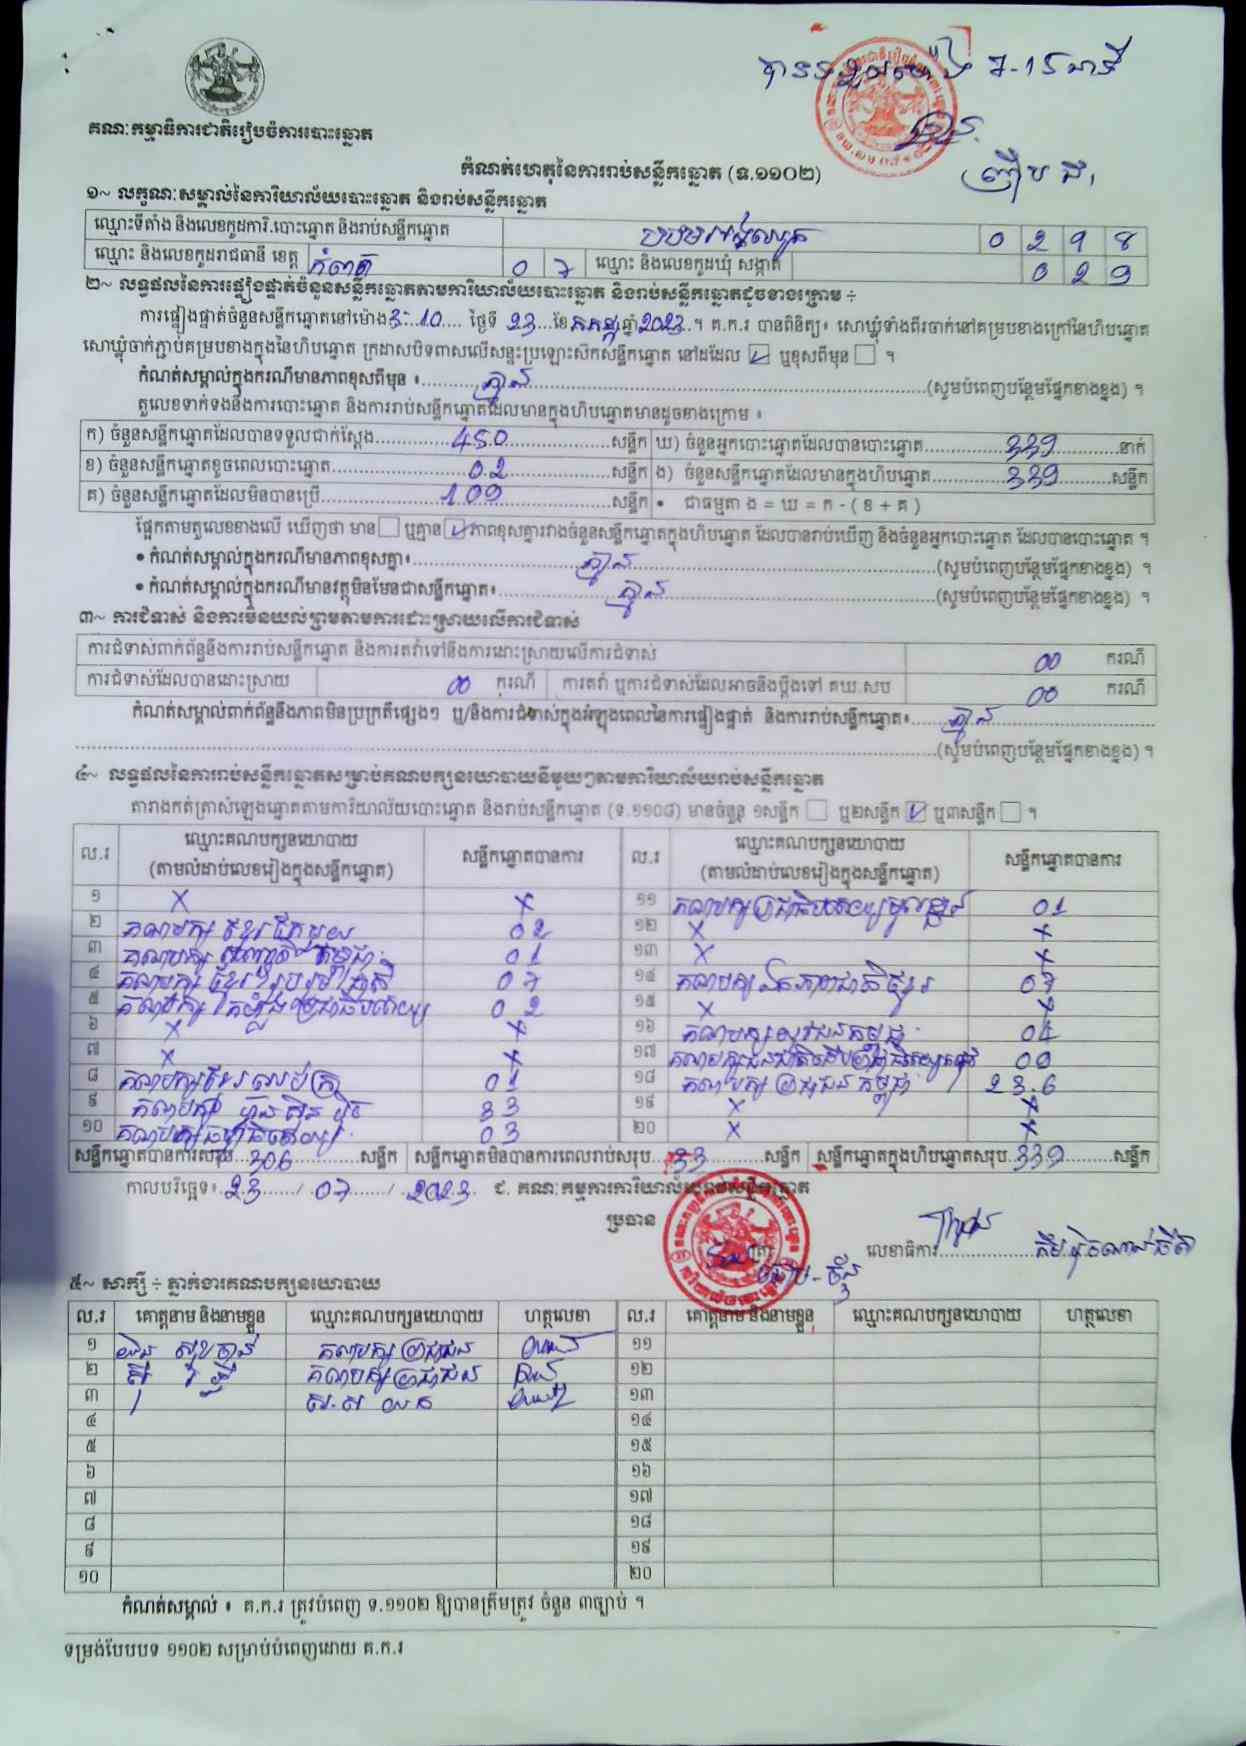 បានទទួលម៉ោង ៩-15 នាទី
គណៈកម្មាធិការជាតិរៀបចំការបោះឆ្នោត
កំណត់ហេតុនៃការរាប់សន្លឹកឆ្នោត (ទ.១១០២)
១~ លក្ខណៈសម្គាល់នៃការិយាល័យបោះឆ្នោត និងរាប់សន្លឹកឆ្នោត
ឈ្មោះទីតាំង និងលេខកូដការិ.បោះឆ្នោត និងរាប់សន្លឹកឆ្នោត 0 2 9 8
ឈ្មោះ និងលេខកូដរាជធានី ខេត្ត កំពត 0 7 ឈ្មោះ និងលេខកូដឃុំ សង្កាត់ 0 2 9
២~ លទ្ធផលនៃការផ្ទៀងផ្ទាត់ចំនួនសន្លឹកឆ្នោតតាមការិយាល័យបោះឆ្នោត និងរាប់សន្លឹកឆ្នោតដូចខាងក្រោម ÷
ការផ្ទៀងផ្ទាត់ចំនួនសន្លឹកឆ្នោតនៅម៉ោង 3:10 ថ្ងៃទី 23 ខែ កក្កដា ឆ្នាំ 2023 ។ គ.ក.រ បានពិនិត្យ៖ សោឃ្លុំទាំងពីរចាក់នៅគម្របខាងក្រៅនៃហិបឆ្នោត
សោឃ្លុំចាក់ភ្ជាប់គម្របខាងក្នុងនៃហិបឆ្នោត ក្រដាសបិទពាសលើសន្ទះប្រឡោះស៊កសន្លឹកឆ្នោត នៅដដែល ☑ ឬខុសពីមុន ☐ ។
កំណត់សម្គាល់ក្នុងករណីមានភាពខុសពីមុន ៖ គ្មាន (សូមបំពេញបន្ថែមផ្នែកខាងខ្នង) ។
តួលេខទាក់ទងនឹងការបោះឆ្នោត និងការរាប់សន្លឹកឆ្នោតដែលមានក្នុងហិបឆ្នោតមានដូចខាងក្រោម ៖
ក) ចំនួនសន្លឹកឆ្នោតដែលបានទទួលជាក់ស្ដែង 450 សន្លឹក ឃ) ចំនួនអ្នកបោះឆ្នោតដែលបានបោះឆ្នោត 339 នាក់
ខ) ចំនួនសន្លឹកឆ្នោតខូចពេលបោះឆ្នោត 02 សន្លឹក ង) ចំនួនសន្លឹកឆ្នោតដែលមានក្នុងហិបឆ្នោត 339 សន្លឹក
គ) ចំនួនសន្លឹកឆ្នោតដែលមិនបានប្រើ 109 សន្លឹក • ជាធម្មតា ង = ឃ = ក - ( ខ + គ )
ផ្អែកតាមតួលេខខាងលើ ឃើញថា មាន ☐ ឬគ្មាន ☑ ភាពខុសគ្នារវាងចំនួនសន្លឹកឆ្នោតក្នុងហិបឆ្នោត ដែលបានរាប់ឃើញ និងចំនួនអ្នកបោះឆ្នោត ដែលបានបោះឆ្នោត ។
• កំណត់សម្គាល់ក្នុងករណីមានភាពខុសគ្នា៖ គ្មាន (សូមបំពេញបន្ថែមផ្នែកខាងខ្នង) ។
• កំណត់សម្គាល់ក្នុងករណីមានវត្ថុមិនមែនជាសន្លឹកឆ្នោត៖ គ្មាន (សូមបំពេញបន្ថែមផ្នែកខាងខ្នង) ។
៣~ ការជំទាស់ និងការមិនយល់ព្រមតាមការដោះស្រាយលើការជំទាស់
ការជំទាស់ពាក់ព័ន្ធនឹងការរាប់សន្លឹកឆ្នោត និងការតវ៉ាទៅនឹងការដោះស្រាយលើការជំទាស់ 00 ករណី
ការជំទាស់ដែលបានដោះស្រាយ 00 ករណី ការតវ៉ា ឬការជំទាស់ដែលអាចនឹងប្ដឹងទៅ គឃ.សប 00 ករណី
កំណត់សម្គាល់ពាក់ព័ន្ធនឹងភាពមិនប្រក្រតីផ្សេងៗ ឬ/និងការជំទាស់ក្នុងអំឡុងពេលនៃការផ្ទៀងផ្ទាត់ និងការរាប់សន្លឹកឆ្នោត៖ គ្មាន
(សូមបំពេញបន្ថែមផ្នែកខាងខ្នង) ។
៤~ លទ្ធផលនៃការរាប់សន្លឹកឆ្នោតសម្រាប់គណបក្សនយោបាយនីមួយៗតាមការិយាល័យរាប់សន្លឹកឆ្នោត
តារាងកត់ត្រាសំឡេងឆ្នោតតាមការិយាល័យបោះឆ្នោត និងរាប់សន្លឹកឆ្នោត (ទ.១១០៨) មានចំនួន ១សន្លឹក ☐ ឬ២សន្លឹក ☑ ឬ៣សន្លឹក ☐ ។
ល.រ ឈ្មោះគណបក្សនយោបាយ (តាមលំដាប់លេខរៀងក្នុងសន្លឹកឆ្នោត) សន្លឹកឆ្នោតបានការ ល.រ ឈ្មោះគណបក្សនយោបាយ (តាមលំដាប់លេខរៀងក្នុងសន្លឹកឆ្នោត) សន្លឹកឆ្នោតបានការ
១ x x ១១ គណបក្សប្រជាធិបតេយ្យមូលដ្ឋាន 01
២ គណបក្ស ខ្មែរតែមួយ 02 ១២ x x
៣ គណបក្ស កម្ពុជា 01 ១៣ x x
៤ គណបក្ស ខ្មែររួបរួមជាតិ 07 ១៤ គណបក្សឯកភាពជាតិខ្មែរ 07
៥ គណបក្ស កម្លាំងប្រជាធិបតេយ្យ 02 ១៥ x x
៦ x x ១៦ គណបក្សយុវជនកម្ពុជា 04
៧ x x ១៧ គណបក្ស 00
៨ គណបក្សខ្មែរ 01 ១៨ គណបក្ស ប្រជាជនកម្ពុជា 236
៩ គណបក្ស ហ៊្វុនស៊ិនប៉ិច 33 ១៩ x x
១០ គណបក្សធម្មាធិបតេយ្យ 03 ២០ x x
សន្លឹកឆ្នោតបានការសរុប 306 សន្លឹក សន្លឹកឆ្នោតមិនបានការពេលរាប់សរុប 33 សន្លឹក សន្លឹកឆ្នោតក្នុងហិបឆ្នោតសរុប 339 សន្លឹក
កាលបរិច្ឆេទ៖ 23 / 07 / 2023 ជ. គណៈកម្មការការិយាល័យរាប់សន្លឹកឆ្នោត
ប្រធាន
លេខាធិការ
៥~ សាក្សី ÷ ភ្នាក់ងារគណបក្សនយោបាយ
ល.រ គោត្តនាម និងនាមខ្លួន ឈ្មោះគណបក្សនយោបាយ ហត្ថលេខា ល.រ គោត្តនាម និងនាមខ្លួន ឈ្មោះគណបក្សនយោបាយ ហត្ថលេខា
១ គណបក្ស ប្រជាជន ១១
២ គណបក្ស ប្រជាជន ១២
៣ ១៣
៤ ១៤
៥ ១៥
៦ ១៦
៧ ១៧
៨ ១៨
៩ ១៩
១០ ២០
កំណត់សម្គាល់ ៖ គ.ក.រ ត្រូវបំពេញ ទ.១១០២ ឱ្យបានត្រឹមត្រូវ ចំនួន ៣ច្បាប់ ។
ទម្រង់បែបបទ ១១០២ សម្រាប់បំពេញដោយ គ.ក.រ